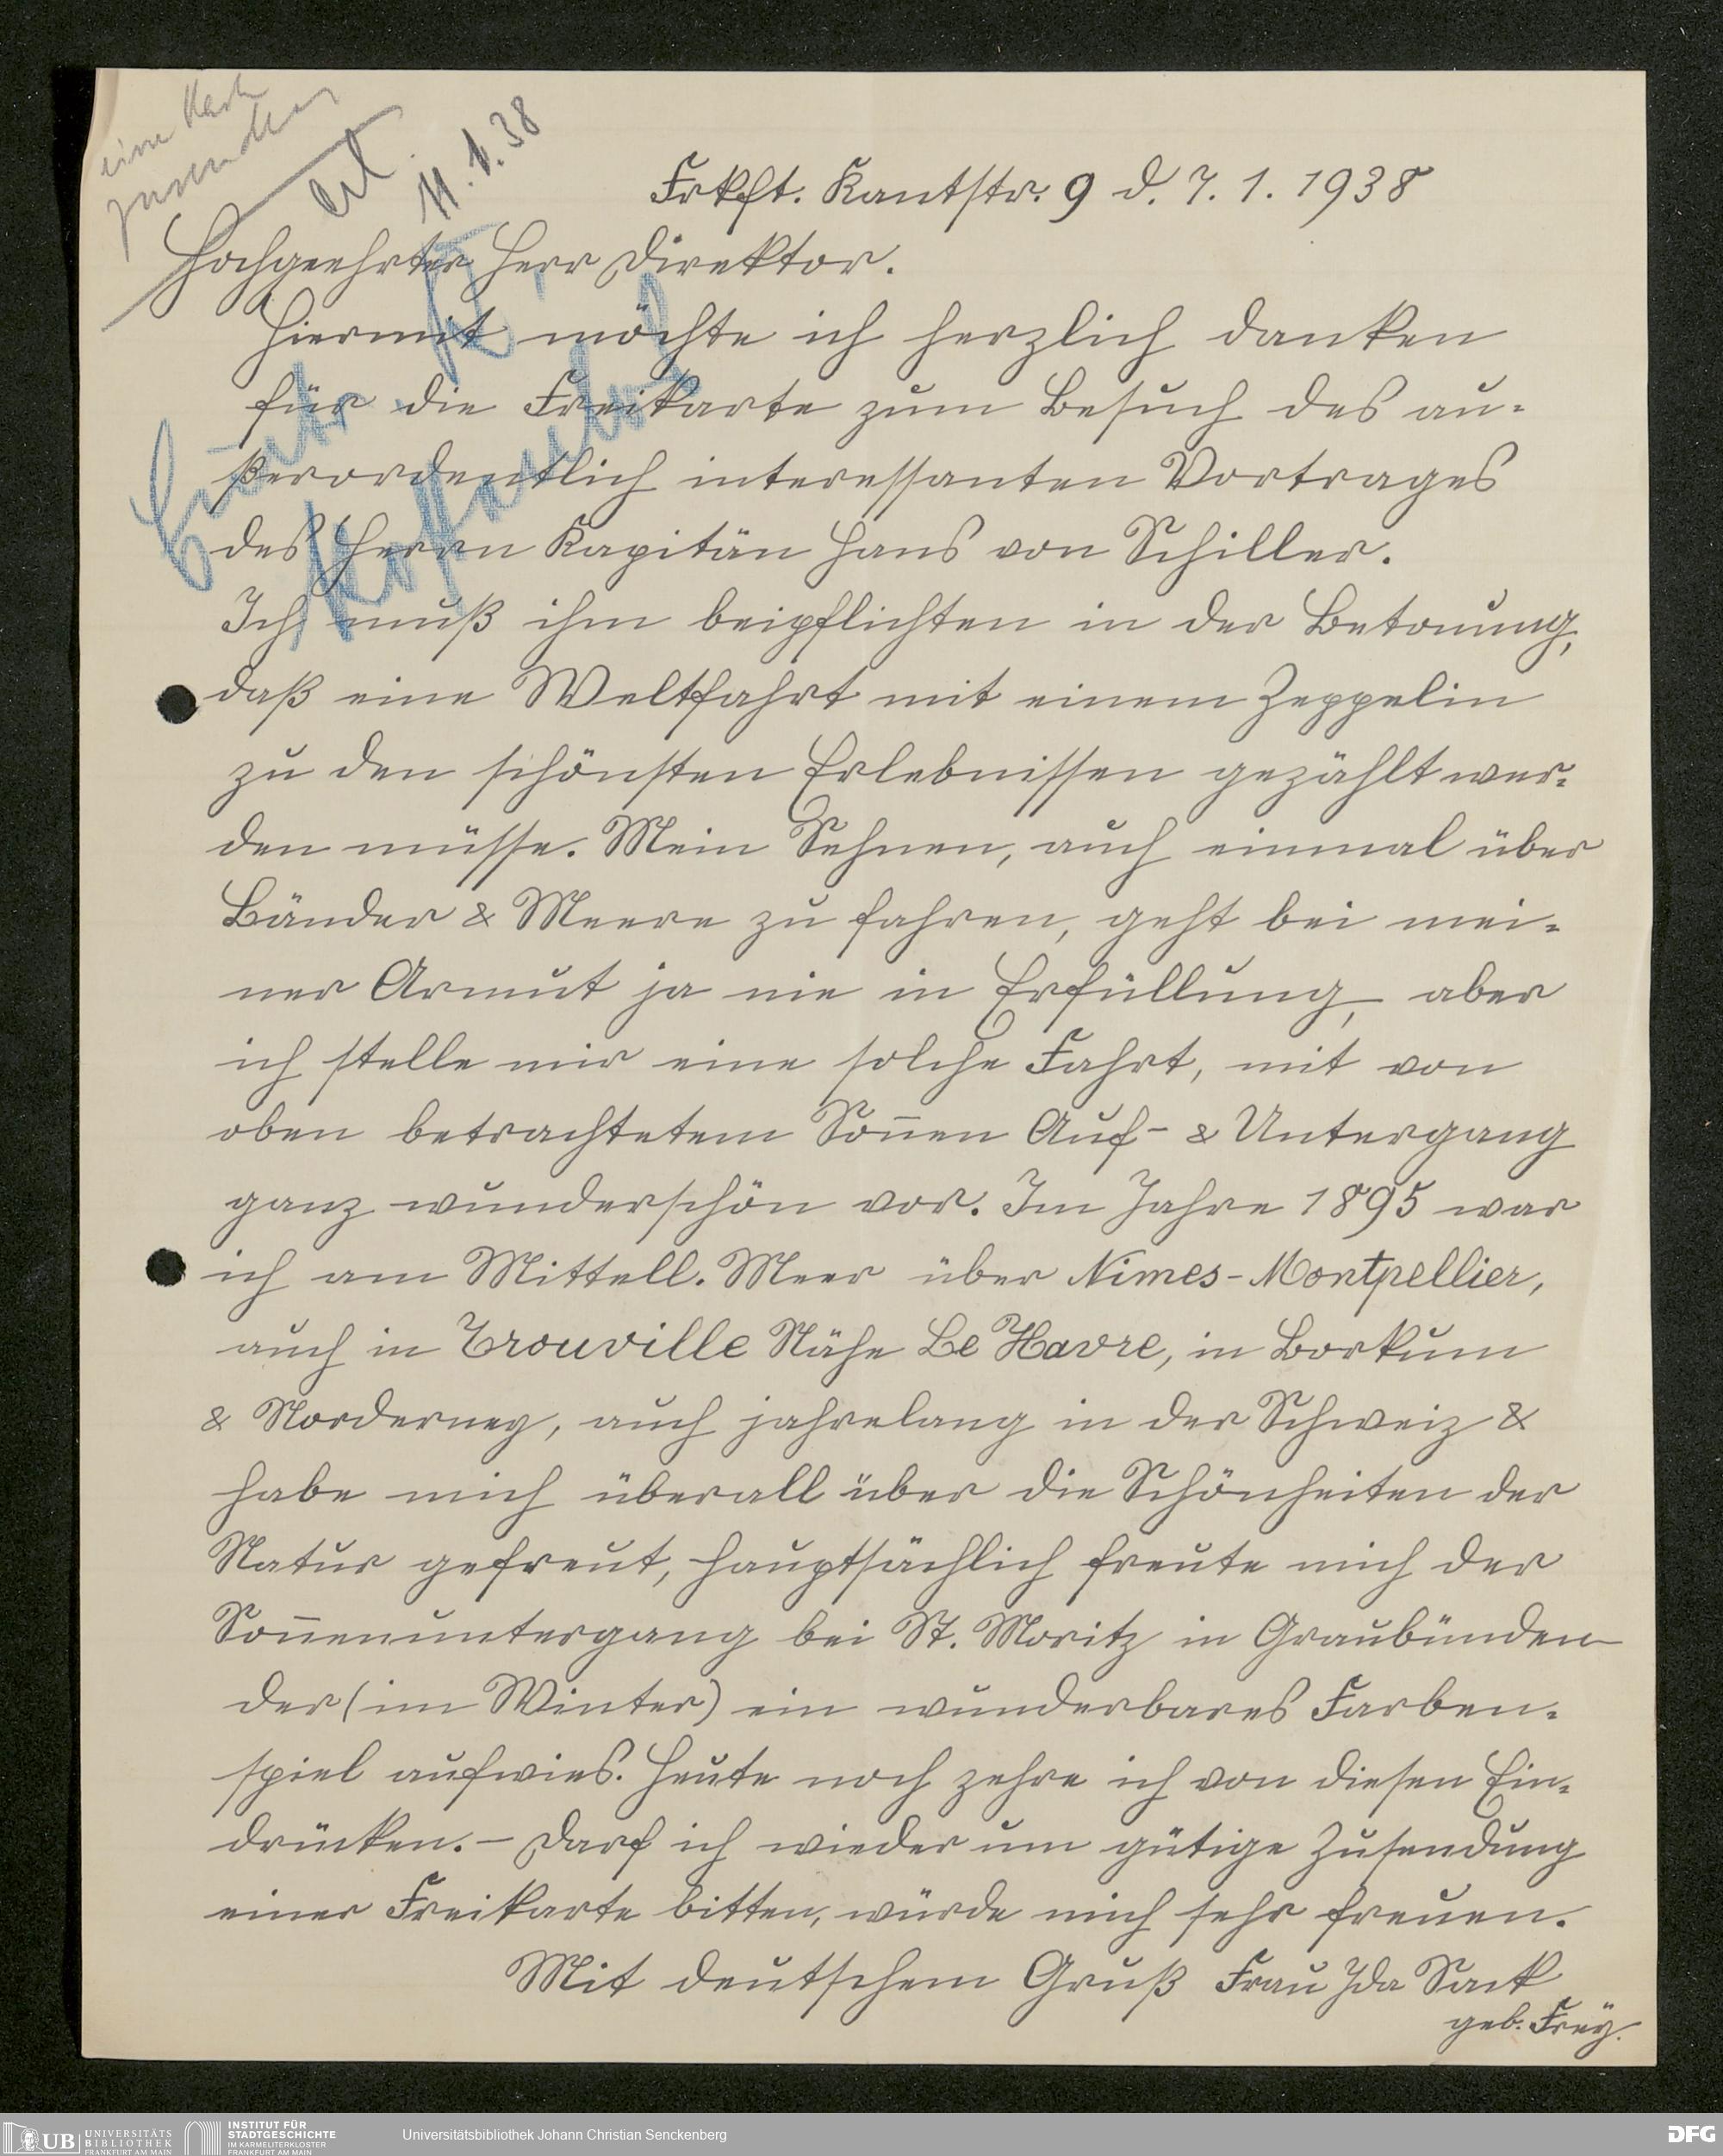 eine Karte
zusenden
erl. 11.1.38
Frkft. Kantstr. 9 d. 7. 1. 1938
Hochgeehrter Herr Direktor.
Hiermit möchte ich herzlich danken
für die Freikarte zum Besuch des au-
ßerordentlich interessanten Vortrages
des Herrn Kapitän Hans von Schiller.
Ich muß ihm beipflichten in der Betonung,
daß eine Weltfahrt mit einem Zeppelin
zu den schönsten Erlebnissen gezählt wer-
den müsse. Mein Sehnen, auch einmal über
Länder & Meere zu fahren, geht bei mei-
ner Armut ja nie in Erfüllung, aber
ich stelle mir eine solche Fahrt, mit von
oben betrachtetem Soñen Auf- & Untergang
ganz wunderschön vor. Im Jahre 1895 war
ich am Mittell. Meer über Nimes-Montpellier,
auch in Trouville Nähe Le Havre, in Borkum
& Norderney, auch jahrelang in der Schweiz &
habe mich überall über die Schönheiten der
Natur gefreut, hauptsächlich freute mich der
Soñenuntergang bei St. Moritz in Graubünden
der (im Winter) ein wunderbares Farben-
spiel aufwies. Heute noch zehre ich von diesen Ein-
drücken. – Darf ich wieder um gütige Zusendung
einer Freikarte bitten, würde mich sehr freuen.
Mit deutschem Gruß Frau Ida Sack
geb. Freÿ.
UB UNIVERSITÄTS
BIBLIOTHEK
FRANKFURT AM MAIN
INSTITUT FÜR
STADTGESCHICHTE
IM KARMELITERKLOSTER
FRANKFURT AM MAIN
Universitätsbibliothek Johann Christian Senckenberg
DFG